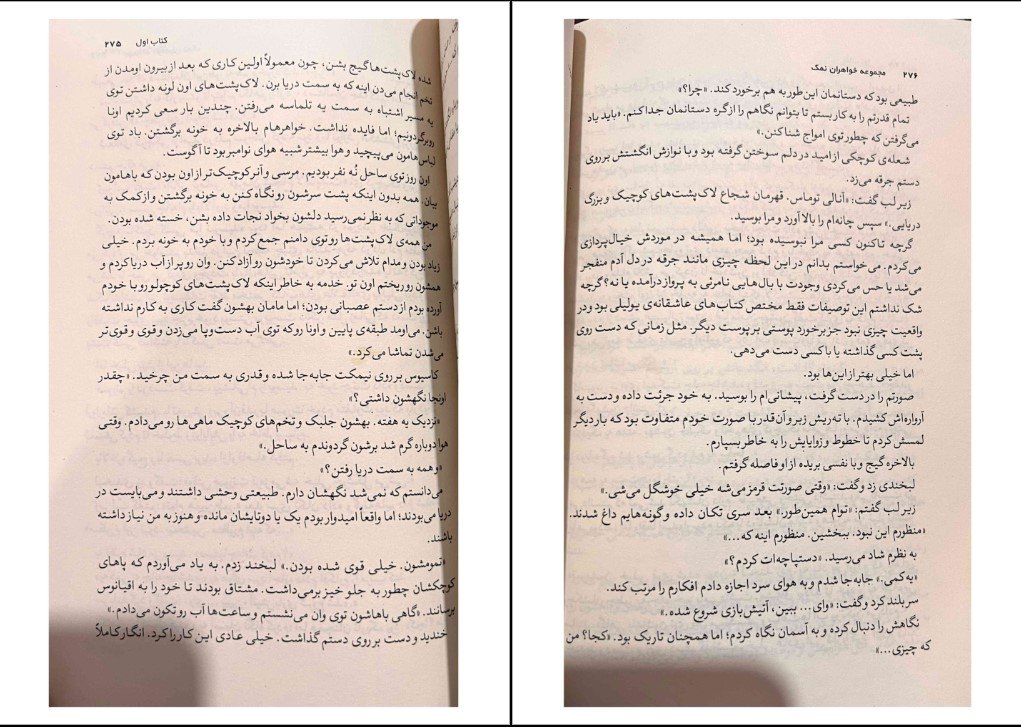 کتاب اول ۲۷۵
شده لاک‌پشت‌ها گیج بشن، چون معمولاً اولین کاری که بعد از بیرون اومدن از
تخم انجام می‌دن اینه که به سمت دریا برن. لاک‌پشت‌های اون لونه داشتن توی
یه مسیر اشتباه به سمت یه تلماسه می‌رفتن. چندین بار سعی کردیم اونا
رو برگردونیم؛ اما فایده نداشت. خواهرهام بالاخره به خونه برگشتن. باد توی
لباس‌هامون می‌پیچید و هوا بیشتر شبیه هوای نوامبر بود تا آگوست.
اون روز توی ساحل نُه نفر بودیم. مرسی و آنر کوچیک‌تر از اون بودن که باهامون
بیان. همه بدون اینکه پشت سرشون رو نگاه کنن به خونه برگشتن و از کمک به
موجوداتی که به نظر نمی‌رسید دلشون بخواد نجات داده بشن، خسته شده بودن.
من همه‌ی لاک‌پشت‌ها رو توی دامنم جمع کردم و با خودم به خونه بردم. خیلی
زیاد بودن و مدام تلاش می‌کردن تا خودشون رو آزاد کنن. وان رو پر از آب دریا کردم و
همشون رو ریختم اون تو. خدمه به خاطر اینکه لاک‌پشت‌های کوچولو رو با خودم
آورده بودم از دستم عصبانی بودن؛ اما مامان بهشون گفت کاری به کارم نداشته
باشن. می‌اومد طبقه‌ی پایین و اونا رو که توی آب دست‌وپا می‌زدن و قوی و قوی‌تر
می‌شدن تماشا می‌کرد.»
کاسیوس بر روی نیمکت جابه‌جا شده و قدری به سمت من چرخید. «چقدر
اونجا نگهشون داشتی؟»
«نزدیک یه هفته. بهشون جلبک و تخم‌های کوچیک ماهی‌ها رو می‌دادم. وقتی
هوا دوباره گرم شد برشون گردوندم به ساحل.»
«و همه به سمت دریا رفتن؟»
می‌دانستم که نمی‌شد نگهشان دارم. طبیعتی وحشی داشتند و می‌بایست در
دریا می‌بودند؛ اما واقعاً امیدوار بودم یک یا دوتایشان مانده و هنوز به من نیاز داشته
باشند.
«تمومشون. خیلی قوی شده بودن.» لبخند زدم. به یاد می‌آوردم که پاهای
کوچکشان چطور به جلو خیز برمی‌داشت. مشتاق بودند تا خود را به اقیانوس
برسانند. «گاهی باهاشون توی وان می‌نشستم و ساعت‌ها آب رو تکون می‌دادم.»
خندید و دست بر روی دستم گذاشت. خیلی عادی این کار را کرد. انگار کاملاً
۲۷۶ مجموعه خواهران نمک
طبیعی بود که دستانمان این‌طور به هم برخورد کند. «چرا؟»
تمام قدرتم را به کار بستم تا بتوانم نگاهم را از گره دستانمان جدا کنم. «باید یاد
می‌گرفتن که چطور توی امواج شنا کنن.»
شعله‌ی کوچکی از امید در دلم سوختن گرفته بود و با نوازش انگشتش بر روی
دستم جرقه می‌زد.
زیر لب گفت: «آنالی توماس. قهرمان شجاع لاک‌پشت‌های کوچیک و بزرگ
دریایی.» سپس چانه‌ام را بالا آورد و مرا بوسید.
گرچه تاکنون کسی مرا نبوسیده بود؛ اما همیشه در موردش خیال‌پردازی
می‌کردم. می‌خواستم بدانم در این لحظه چیزی مانند جرقه در دل آدم منفجر
می‌شد یا حس می‌کردی وجودت با بال‌هایی نامرئی به پرواز درآمده یا نه؟ گرچه
شک نداشتم این توصیفات فقط مختص کتاب‌های عاشقانه‌ی یولیلی بود و در
واقعیت چیزی نبود جز برخورد پوستی بر پوست دیگر. مثل زمانی که دست روی
پشت کسی گذاشته یا با کسی دست می‌دهی.
اما خیلی بهتر از این‌ها بود.
صورتم را در دست گرفت، پیشانی‌ام را بوسید. به خود جرئت داده و دست به
آرواره‌اش کشیدم. با ته‌ریش زبر و آن‌قدر با صورت خودم متفاوت بود که بار دیگر
لمسش کردم تا خطوط و زوایایش را به خاطر بسپارم.
بالاخره گیج و با نفسی بریده از او فاصله گرفتم.
لبخندی زد و گفت: «وقتی صورتت قرمز می‌شه خیلی خوشگل می‌شی.»
زیر لب گفتم: «توام همین‌طور.» بعد سری تکان داده و گونه‌هایم داغ شدند.
«منظورم این نبود. ببخشین. منظورم اینه که...»
به نظرم شاد می‌رسید. «دستپاچه‌ات کردم؟»
«یه‌کمی.» جابه‌جا شدم و به هوای سرد اجازه دادم افکارم را مرتب کند.
سر بلند کرد و گفت: «وای... ببین، آتیش‌بازی شروع شده.»
نگاهش را دنبال کرده و به آسمان نگاه کردم؛ اما همچنان تاریک بود. «کجا؟ من
که چیزی...»